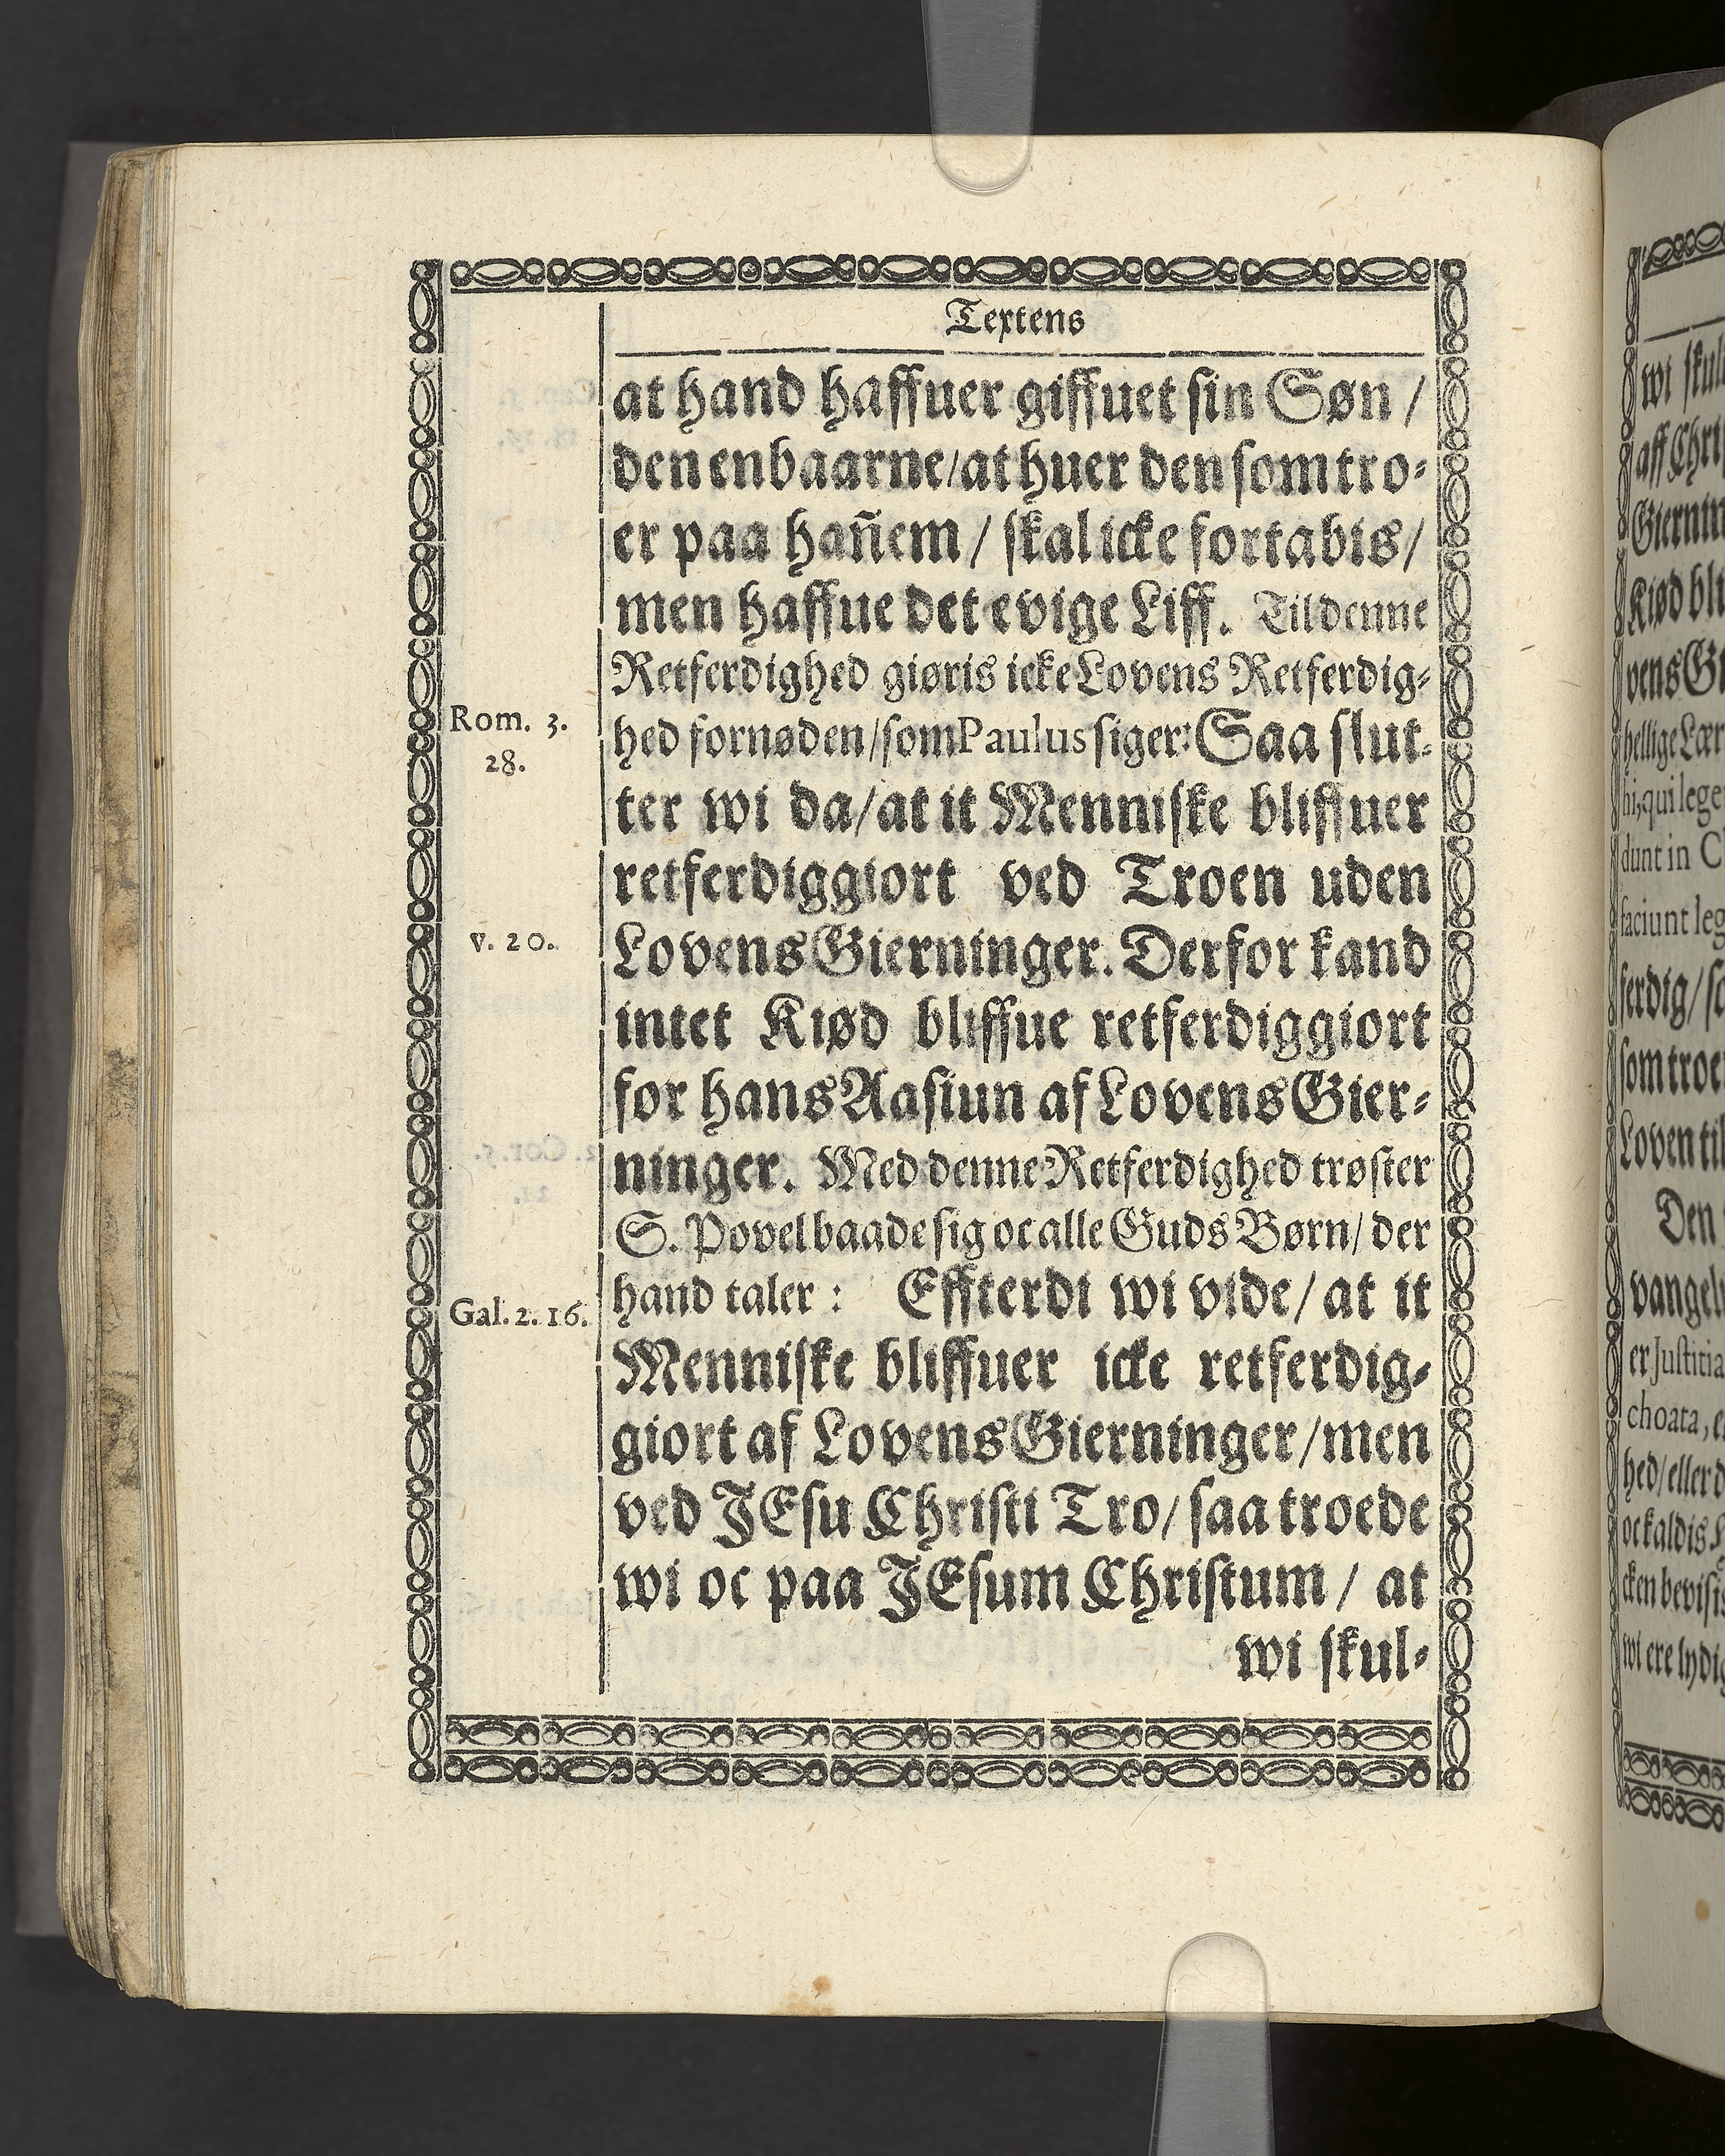 Textens
at hand haffuer giffuet sin Søn /
den enbaarne/at huer den som tro-
er paa hañem / skal icke fortabis/
men haffue det evige Liff. Til denne
Retferdighed giøris icke Lovens Retferdig-
Rom. 3.
28.
hed fornøden/som Paulus siger: Saa slut-
ter wi da/at it Menniske bliffuer
retferdiggiort ved Troen uden
v. 20.
Lovens Gierninger. Derfor kand
intet Kiød bliffue retferdiggiort
for hans Aasiun af Lovens Gier-
ninger. Med denne Retferdighed trøster
S. Povel baade sig oc alle Guds Børn/ der
Gal. 2. 16.
hand taler : Effterdi wi vide/ at it
Menniske bliffuer icke retferdig-
giort af Lovens Gierninger/men
ved JEsu Christi Tro/ saa troede
wi oc paa JEsum Christum / at
wi skul-
wi skul
aff Chri
Giernin
Kiød bli
vens Gi
hellige Lær
hi, qui lege
dunt in C
faciunt leg
ferdig/ so
som troe
Loven til
Den
vangel
er Justitia
choata, e
hed/ eller d
oc kaldis H
cken bevisis
wi ere lydig